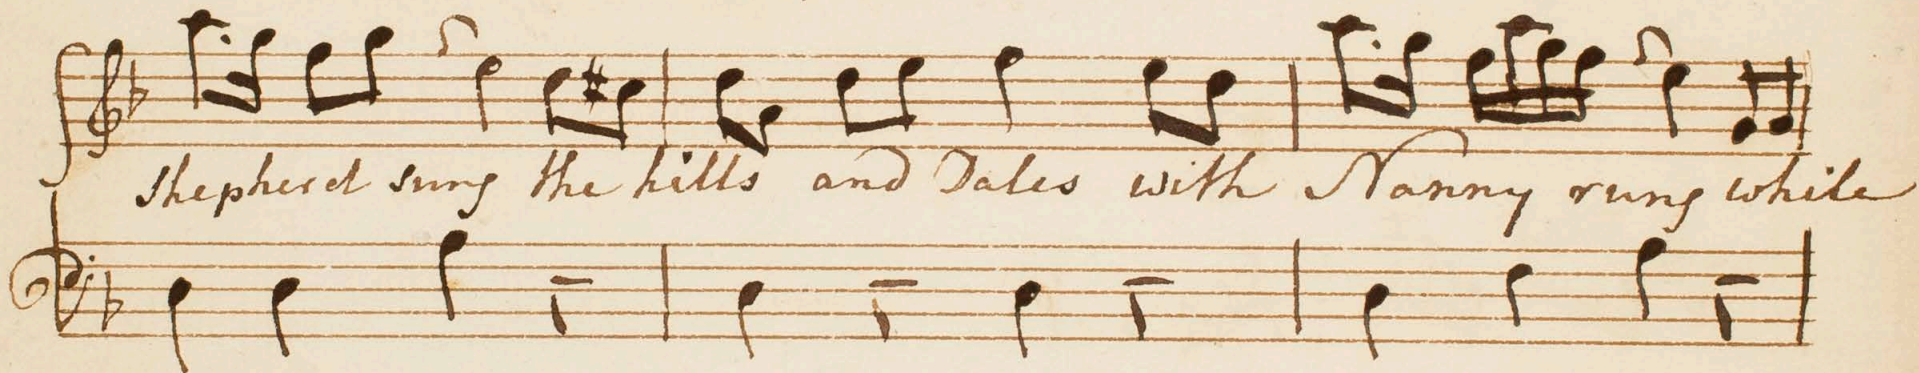 Shepherd sung the hills and Dales with Nanny rung while